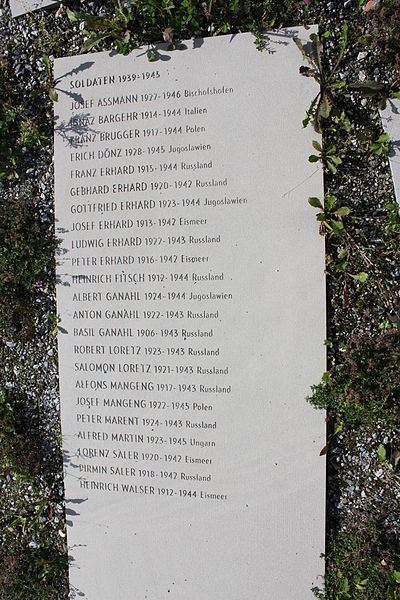 SOLDATEN 1939-1945
JOSEF ASSMANN 1927-1946 Bischofshofen
IGNAZ BARGEHR 1914-1944 Italien
FRANZ BRUGGER 1917-1944 Polen
ERICH DÖNZ 1928-1945 Jugoslawien
FRANZ ERHARD 1915-1944 Russland
GEBHARD ERHARD 1920-1942 Russland
GOTTFRIED ERHARD 1923-1944 Jugoslawien
JOSEF ERHARD 1913-1942 Eismeer
LUDWIG ERHARD 1922-1943 Russland
PETER ERHARD 1916-1942 Eismeer
HEINRICH FITSCH 1912-1944 Russland
ALBERT GANAHL 1924-1944 Jugoslawien
ANTON GANAHL 1922-1943 Russland
BASIL GANAHL 1906-1943 Russland
ROBERT LORETZ 1923-1943 Russland
SALOMON LORETZ 1921-1943 Russland
ALFONS MANGENG 1917-1943 Russland
JOSEF MANGENG 1922-1945 Polen
PETER MARENT 1924-1943 Russland
ALFRED MARTIN 1923-1945 Ungarn
LORENZ SALER 1920-1942 Eismeer
PIRMIN SALER 1918-1942 Russland
HEINRICH WALSER 1912-1944 Eismeer